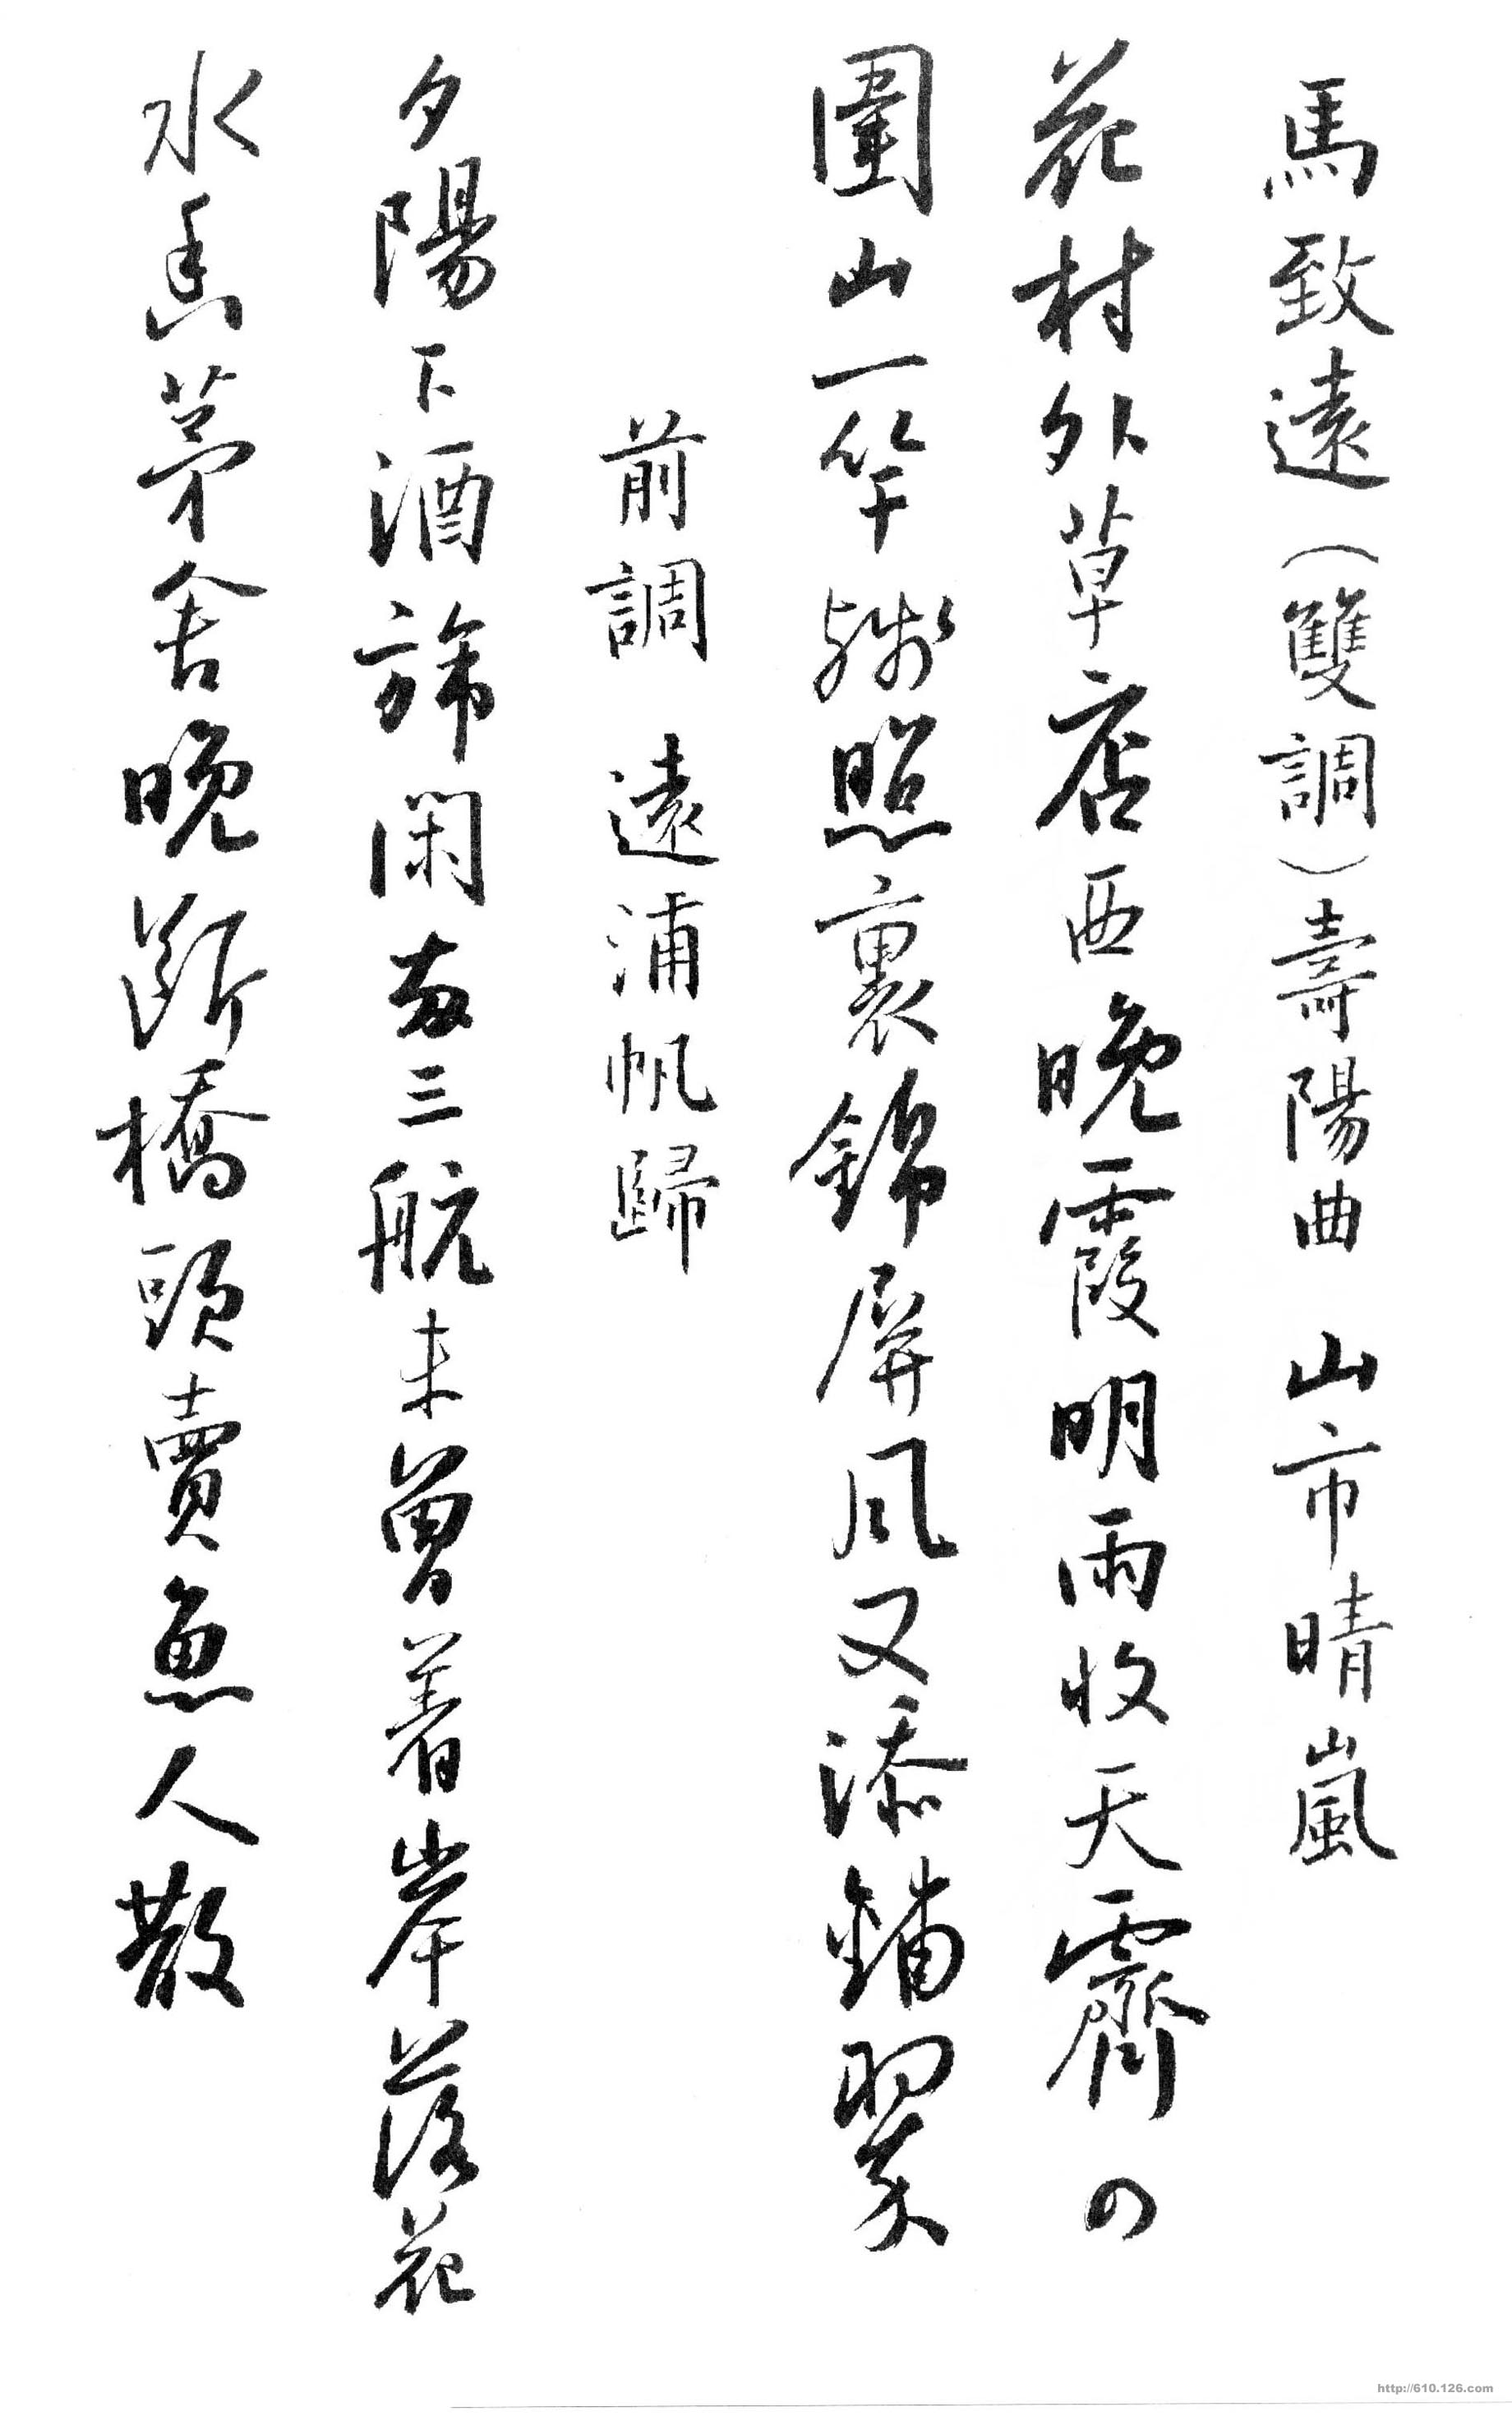 馬致遠（雙調）壽陽曲 山市晴嵐
花村外草店西晚霞明雨收天霽四
圍山一竿殘照裏錦屏風又添鋪翠
前調 遠浦帆歸
夕陽下酒旆閑兩三航未曾著岸落花
水香茅舍晚斷橋頭賣魚人散
http://610.126.com